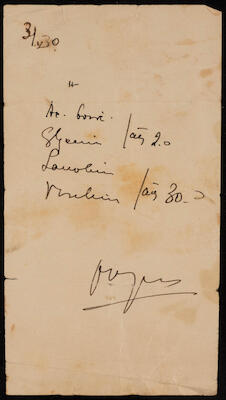 3/x30
"
Ac. boric.
Glycerin /aa 20
Lanolin
Vaselin /aa 30.0